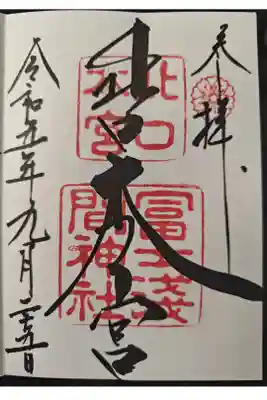 奉拝
北口本宮
北口
本宮
冨士淺
間神社
令和五年九月二十五日